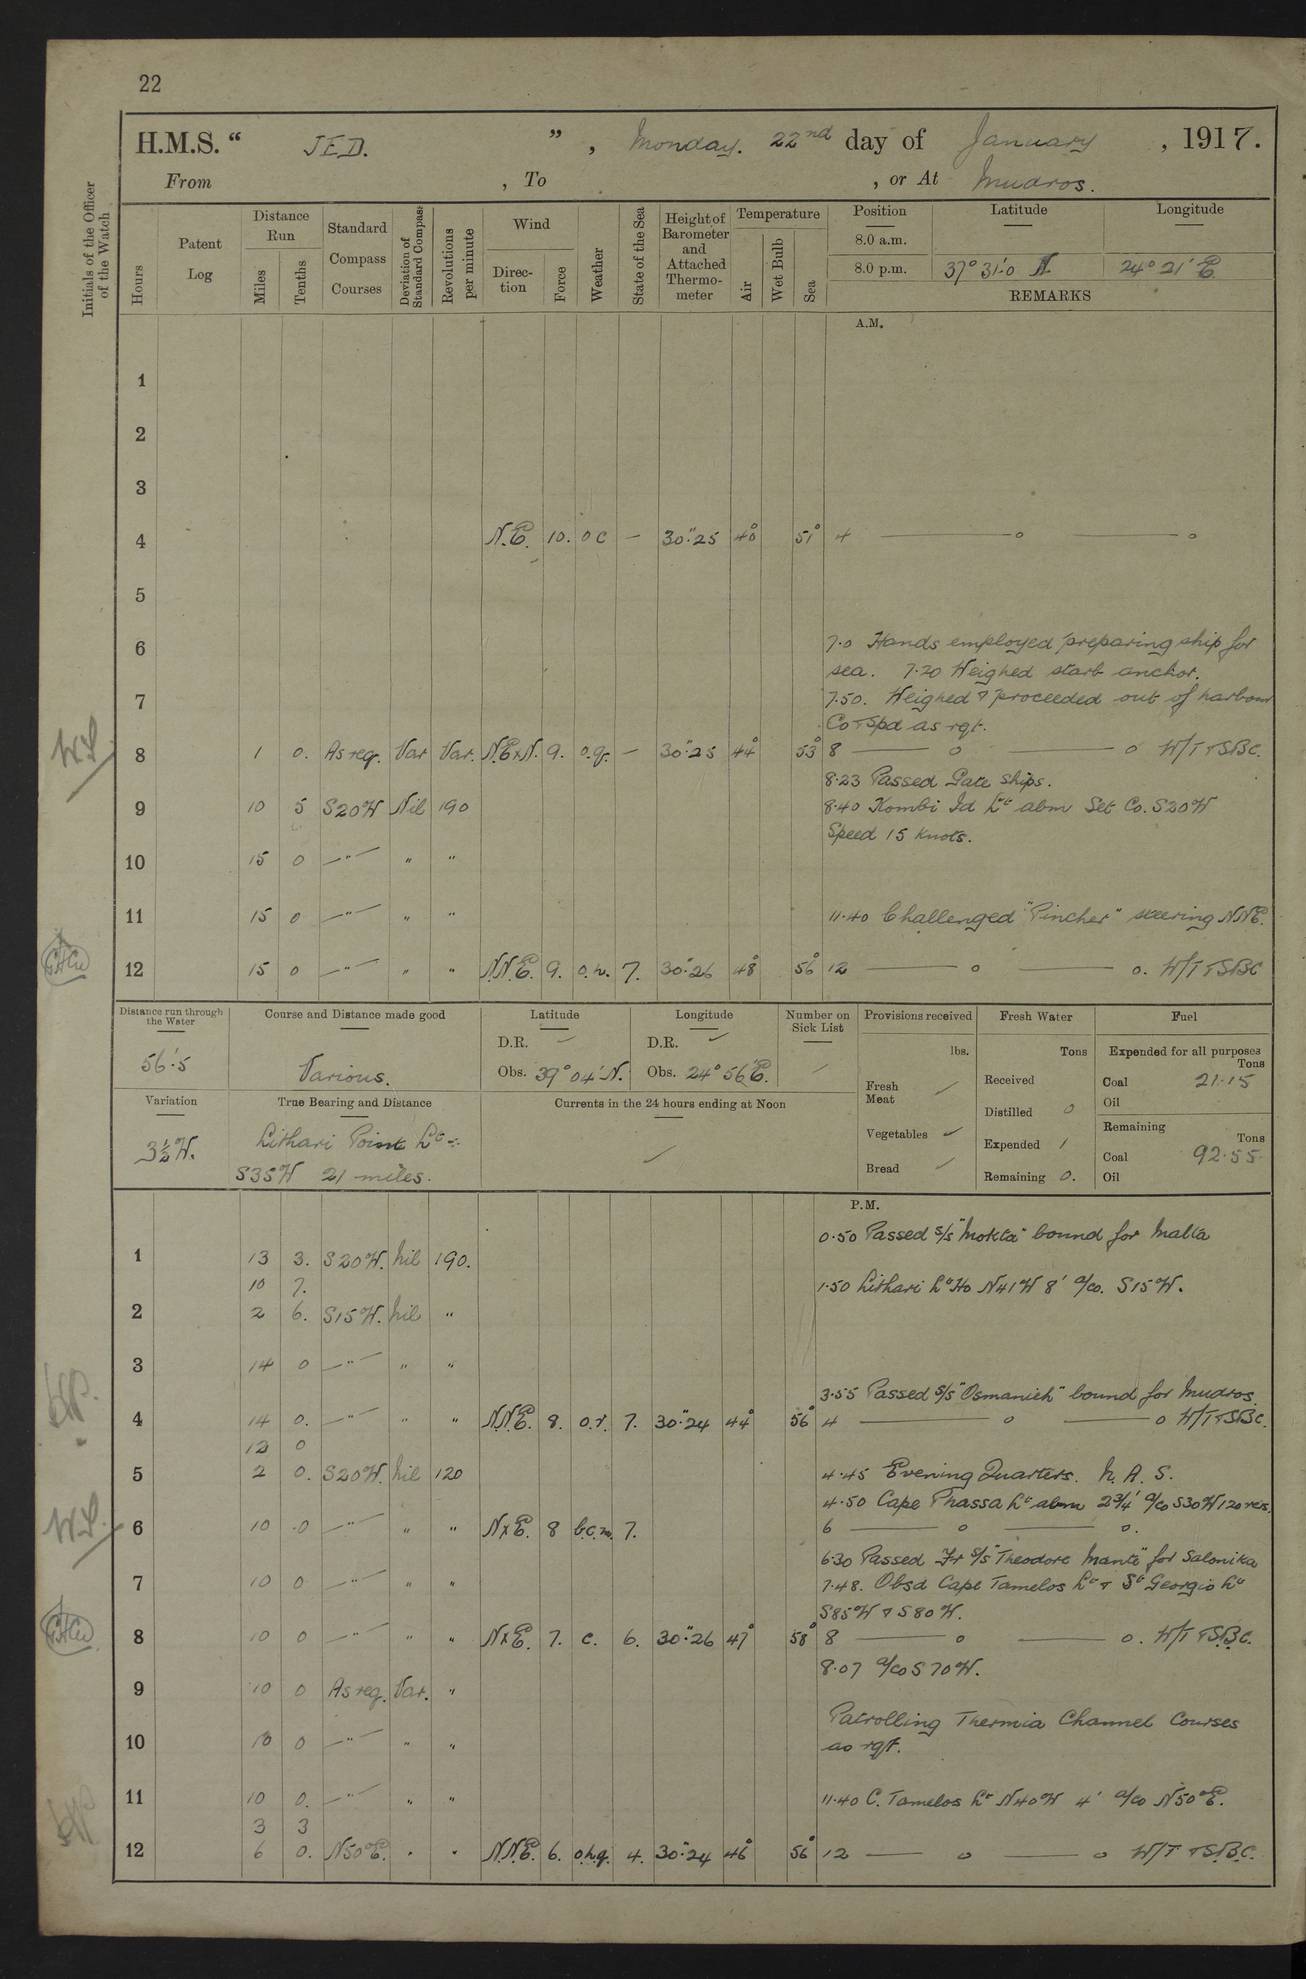 22
H.M.S. " JED. ", Monday. 22nd day of January, 1917.
From , To , or At Mudros.
Initials of the Officer of the Watch
Hours
Patent Log
Distance Run
Miles
Tenths
Standard Compass Courses
Deviation of Standard Compass
Revolutions per minute
Wind
Direction
Force
Weather
State of the Sea
Height of Barometer and Attached Thermometer
Temperature
Air
Wet Bulb
Sea
Position Latitude Longitude
8.0 a.m.
8.0 p.m. 37° 31'.0 N. 24° 21' E.
REMARKS
A.M.
1
2
3
4 N.E. 10. o c — 30".25 40° 51° 4 — o — o
5
6 7.0 Hands employed preparing ship for
sea. 7.20 Weighed starb anchor.
7 7.50. Weighed & proceeded out of harbour
Co & Spd as rqt.
8 1 0. As req. Var Var. N.E.xN. 9. o.q. — 30".25 44° 53° 8 — o — o W/T & S.B.C.
8.23 Passed Gate Ships.
9 10 5 S20W Nil 190 8.40 Kombi Id Lt abm Set Co. S20W
Speed 15 Knots.
10 15 0 —"— " "
11 15 0 —"— " " 11.40 Challenged "Pincher" steering NNE.
12 15 0 —"— " " N.N.E. 9. o.h. 7. 30".26 48° 56° 12 — o — o. W/T & S.B.C
Distance run through the Water
56'.5
Course and Distance made good
Various.
Latitude
D.R. ✓
Obs. 39° 04' N.
Longitude
D.R. ✓
Obs. 24° 56' E.
Number on Sick List
Provisions received
lbs.
Fresh Meat ✓
Vegetables ✓
Bread ✓
Fresh Water
Tons
Received
Distilled 0
Expended 1
Remaining 0.
Fuel
Expended for all purposes
Tons
Coal 21.15
Oil
Remaining
Tons
Coal 92.55
Oil
Variation
3½ W.
True Bearing and Distance
Lithari Point Lt -:
S35W 21 miles.
Currents in the 24 hours ending at Noon
✓
P.M.
0.50 Passed s/s "Mokta" bound for Malta
1 13 3. S20W. Nil 190.
10 7. 1.50 Lithari Lt Ho N41W 8' a/co. S15W.
2 2 6. S15W. Nil "
3 14 0 —"— " "
3.55 Passed s/s "Osmanieh" bound for Mudros.
4 14 0. —"— " " N.N.E. 8. o.r. 7. 30".24 44° 56° 4 — o — o W/T & S.B.C.
12 0
5 2 0. S20W. Nil 120 4.45 Evening Quarters. N. A. S.
4.50 Cape Phassa Lt abm 2¾' a/co S30W 120 revs.
6 10 0 —"— " " NxE. 8 b.c.m. 7. 6 — o — o.
6.30 Passed Fr s/s "Theodore Mante" for Salonika
7 10 0 —"— " " 7.48. Obsd Cape Tamelos Lt & St Georgio Lt
S85W & S80W.
8 10 0 —"— " " NxE. 7. c. 6. 30".26 47° 58° 8 — o — o. W/T & S.B.C.
8.07 a/co S70W.
9 10 0 As req. Var. "
Patrolling Thermia Channel Courses
10 10 0 —"— " " as rqt.
11 10 0. —"— " " 11.40 C. Tamelos Lt N40W 4' a/co N50E.
3 3
12 6 0. N50E. " " N.N.E. 6. o.h.q. 4. 30".24 46° 56° 12 — o — o W/T & S.B.C.